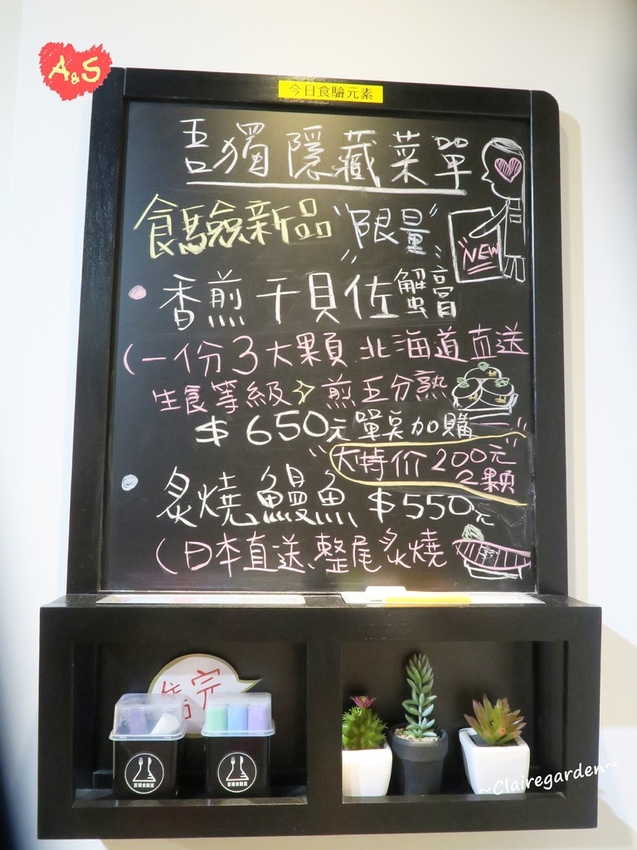 A&S
今日食驗元素
吾獨隱藏菜單
食驗新品"限量"
NEW
香煎干貝佐蟹膏
(一份3大顆 北海道直送
生食等級 煎五分熟
$650元 單點加購
"大特价200元"
2顆
炙燒鰻魚 $550元
(日本直送,整尾炙燒
售完
~Clairegarden~